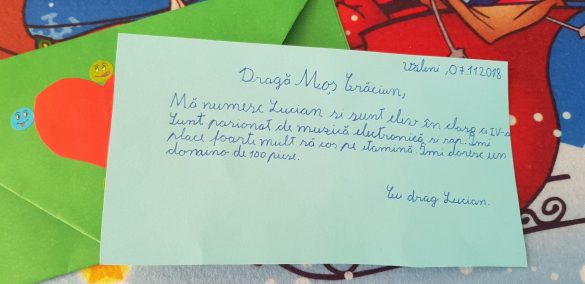 Văleni, 07.11.2018
Dragă Moș Crăciun,
Mă numesc Lucian si sunt elev în clasa a IV-a
Sunt pasionat de muzică electronică si rap. Îmi
place foarte mult să cos pe etamină. Îmi doresc un
domino de 100 piese.
Cu drag Lucian.